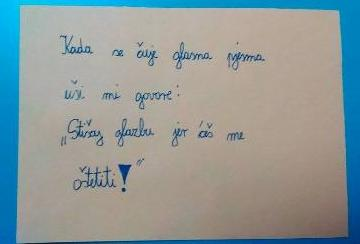 Kada se čuje glasna pjesma
uši mi govore:
„Stišaj glazbu jer ćeš me
oštetiti!“